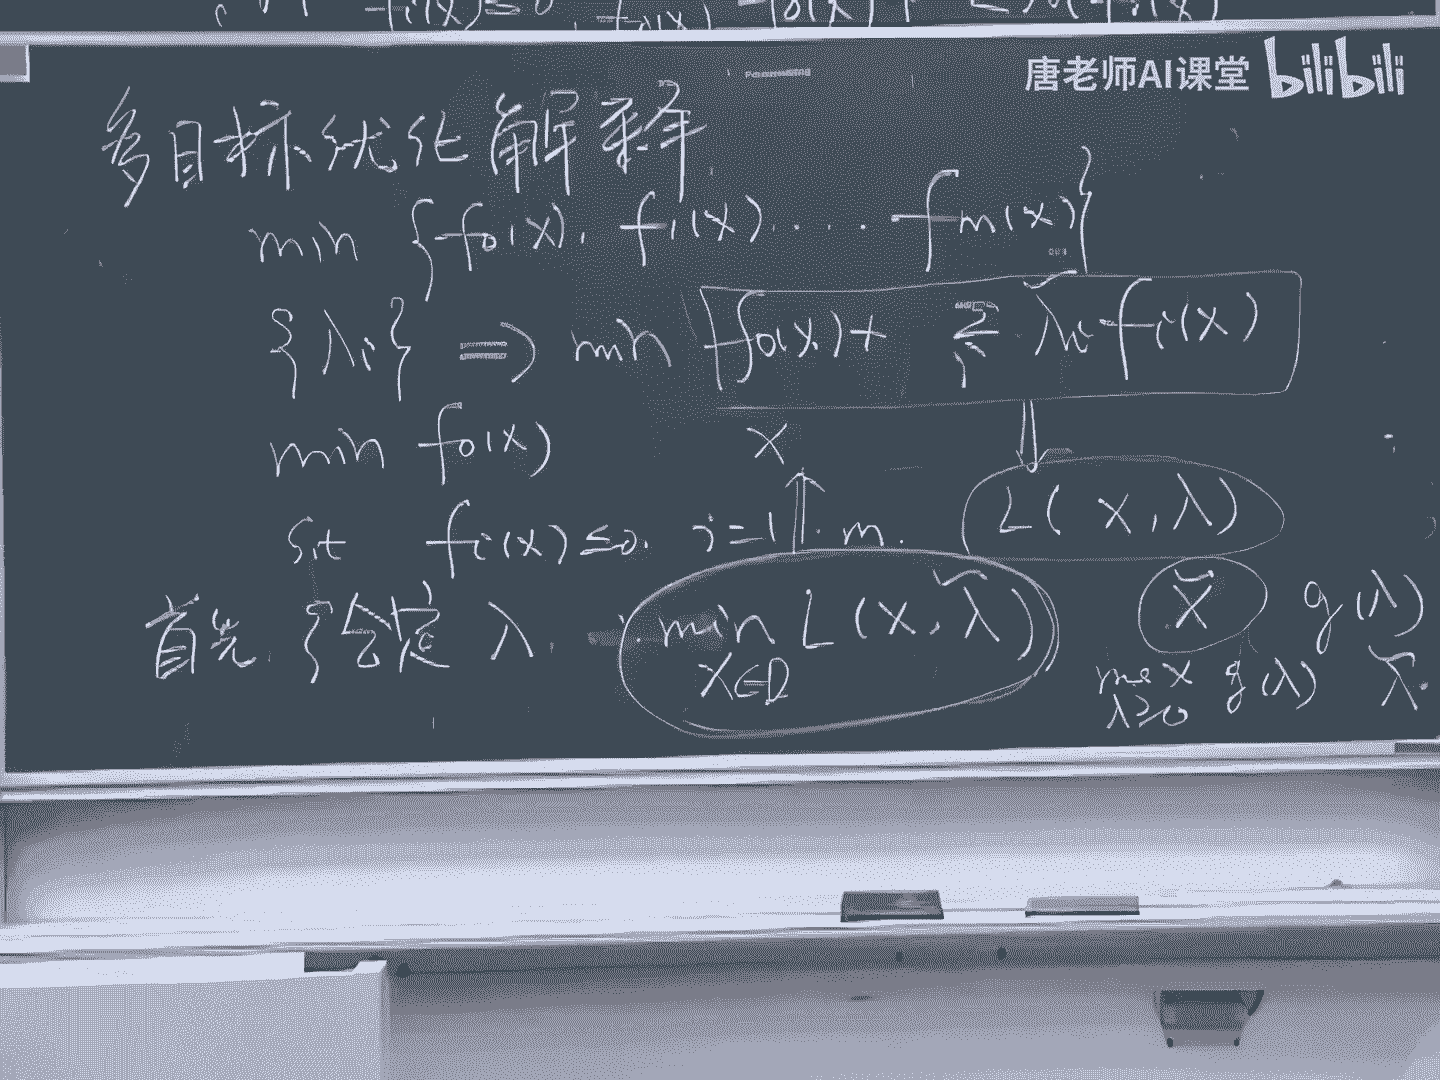 唐老师AI课堂 bilibili
多目标优化解释
min {f₀(x), f₁(x) .... fm(x)}
{λi} ⇒ min f₀(x) + Σi λi fi(x)
min f₀(x) x
s.t fi(x) ≤ 0, i=1 .. m. L(x, λ)
首先 { 给定 λ. min L(x, λ̃) x̃ g(λ)
x∈D max g(λ) λ̃.
λ≥0